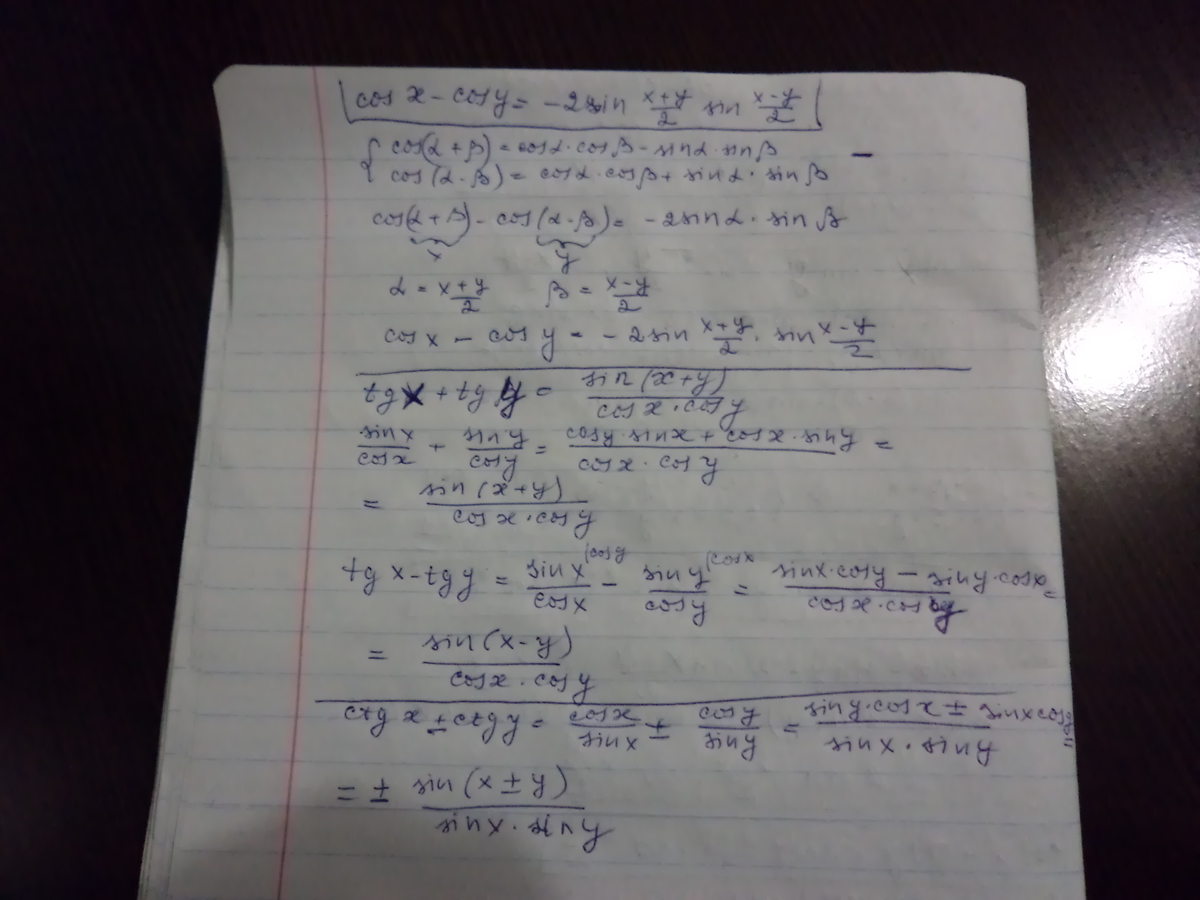 cos x - cos y = -2 sin (x+y)/2 sin (x-y)/2
{ cos(α+β) = cosα·cosβ - sinα·sinβ
cos(α-β) = cosα·cosβ + sinα·sinβ
cos(α+β) - cos(α-β) = -2 sinα·sinβ
x y
α = (x+y)/2 β = (x-y)/2
cos x - cos y = -2 sin (x+y)/2 · sin (x-y)/2
tg x + tg y = sin(x+y)/(cos x · cos y)
sin x/cos x + sin y/cos y = (cos y · sin x + cos x · sin y)/(cos x · cos y) =
= sin(x+y)/(cos x · cos y)
tg x - tg y = sin x (cos y/cos x - sin y (cos x/cos y = (sin x · cos y - sin y · cos x)/(cos x · cos y) =
= sin(x-y)/(cos x · cos y)
ctg x ± ctg y = cos x/sin x ± cos y/sin y = (sin y · cos x ± sin x cos y)/(sin x · sin y) =
= ± sin(x±y)/(sin x · sin y)